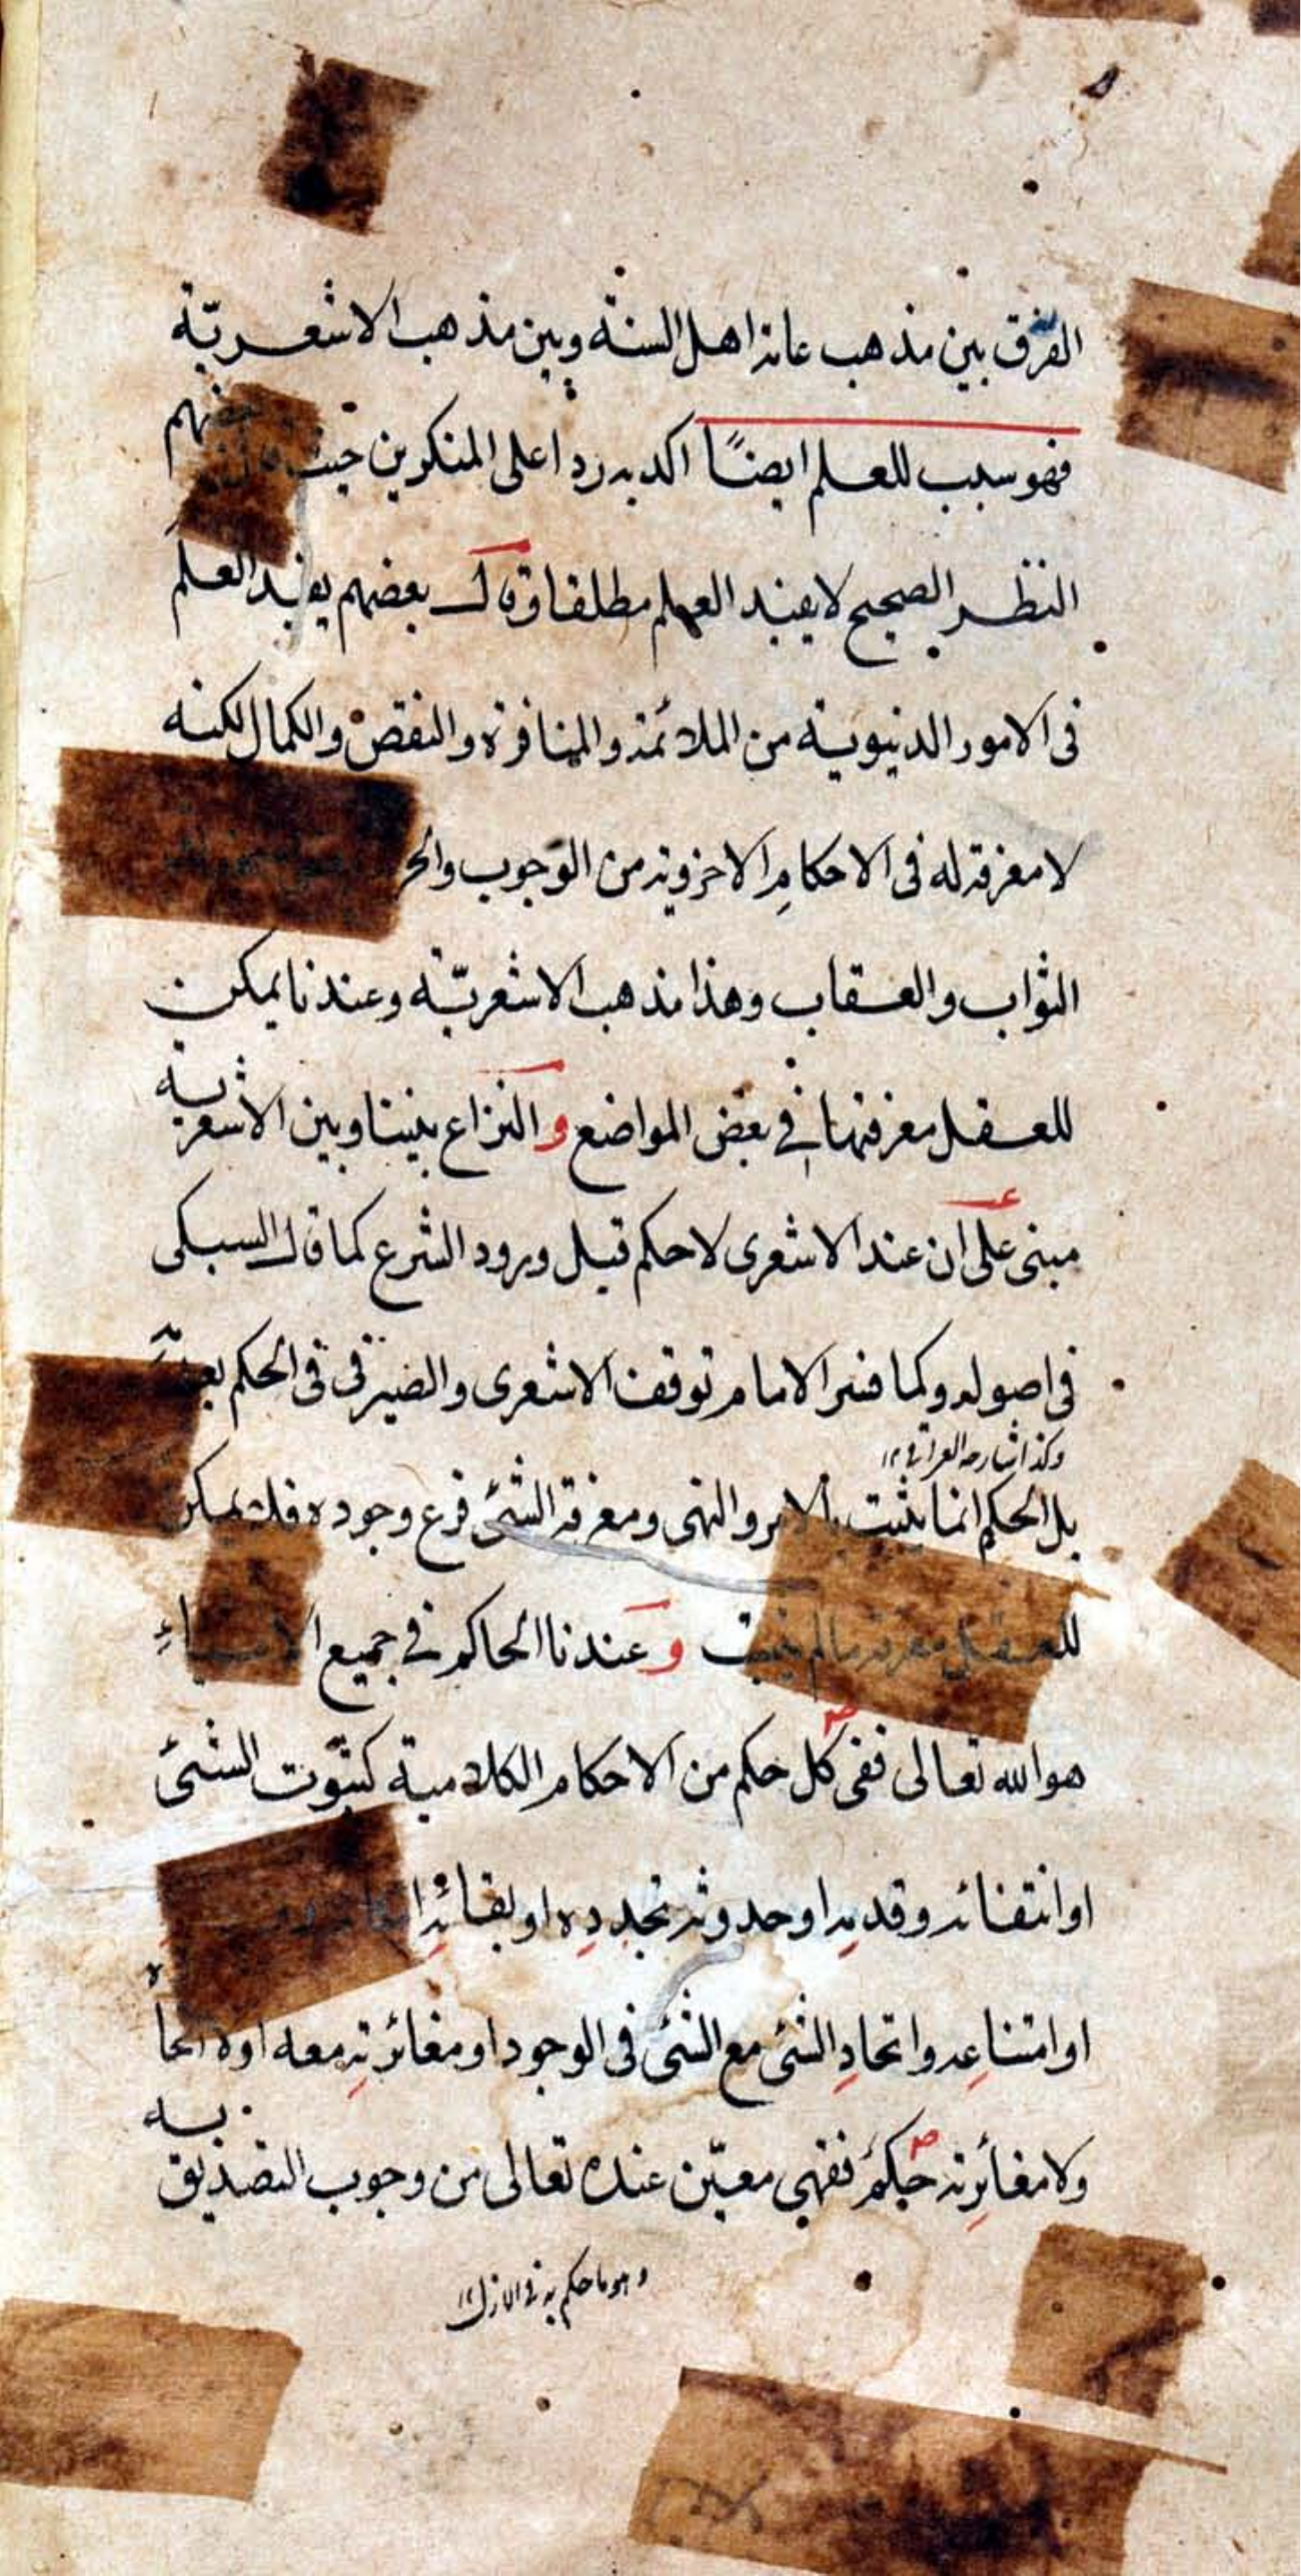 الفرق بين مذهب عامة اهل السنة وبين مذهب الاشعريّة
فهو سبب للعلم ايضًا اكد به ردا على المنكرين حيث قال بعضهم
النظر الصحيح لا يفيد العلم مطلقا وقال بعضهم يفيد العلم
فى الامور الدنيوية من الملائمة والمنافرة والنقص والكمال لكنه
لا معرفة له فى الاحكامِ الاخروية من الوجوب والحر
الثواب والعقاب وهذا مذهب الاشعريّة وعندنا يمكن
للعقل معرفتها فى بعض المواضع و النزاع بيننا وبين الاشعرية
مبنى على ان عند الاشعرى لا حكم قبل ورود الشرع كما قال السبكى
فى اصوله وكما فسر الامام توقف الاشعرى والصيرفى فى الحكم بعدمه
وكذا شارحه العراقى ١٢
بل الحكم انما يثبت بالامر والنهى ومعرفة الشئ فرع وجوده فلا يمكن
للعقل معرفة مالم يثبت و عندنا الحاكم فى جميع الاشياءِ
هو الله تعالى ففى كل حكم من الاحكام الكلامية كثبوت الشئ
او انتفائه وقدمِه او حدوثه تجددِه او لبقائِه
او امتناعِه واتحادِ الشئ مع الشئ فى الوجود او مغائرتِه معه اولا اتحاده
ولا مغائرتِه حكمٌ فقهى معيّن عنده تعالى من وجوب التصديق به
وهو ما حكم به فى الازل ١٢